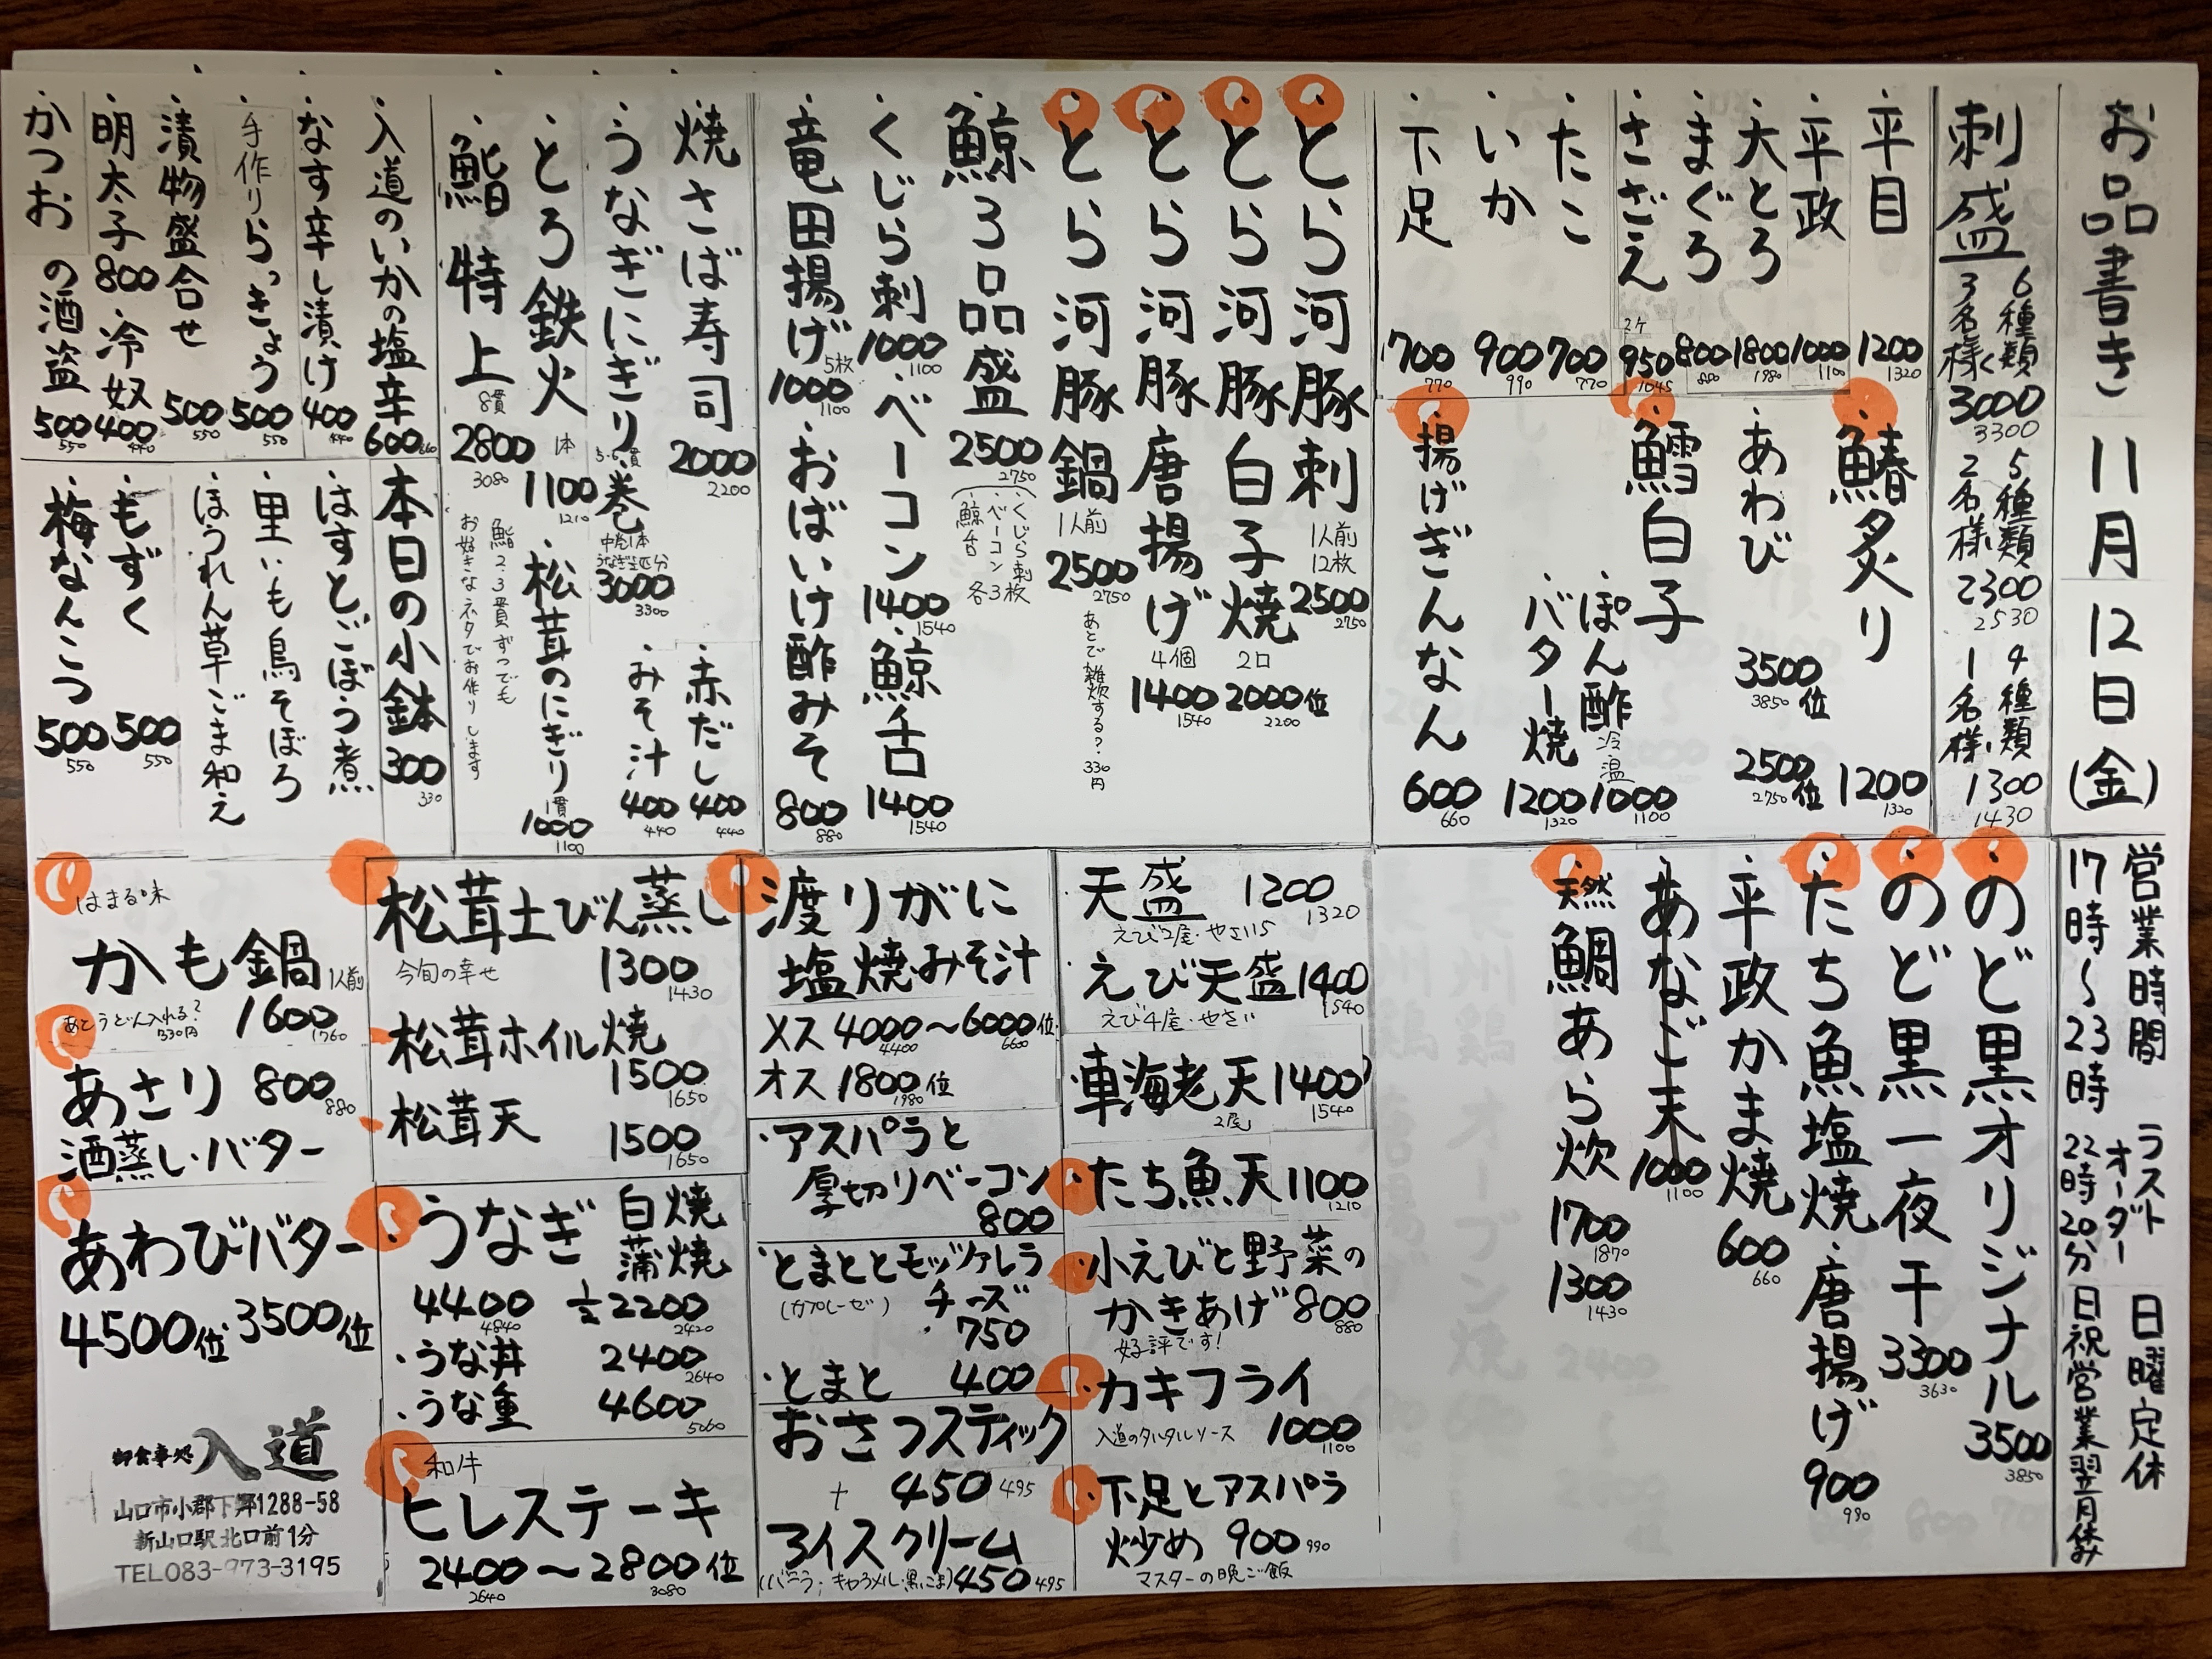 お品書き 11月12日(金)
営業時間 17時〜23時
ラストオーダー 22時20分
日曜定休
日祝営業翌月休み
刺盛
6種類 3名様〱 3000
3300
5種類 2名様 2300
2530
4種類 1名様 1300
1430
・平目 1200
1320
・平政 1000
1100
・大とろ 1800
1980
・まぐろ 800
880
・さざえ 2ケ 950
1045
・たこ 700
770
・いか 900
990
・下足 700
770
・鰆炙り 1200
1320
・あわび 3500位
3850
2500位
2750
・鱈白子
・ぽん酢 冷 温 1000
1100
・バター焼 1200
1320
・揚げぎんなん 600
660
・とら河豚刺 1人前 12枚 2500
2750
・とら河豚白子焼 2口 2000位
2200
・とら河豚唐揚げ 4個 1400
1540
・とら河豚鍋 1人前 2500
2750
あとで雑炊する?330円
・鯨3品盛 2500
2750
・くじら刺 ・ベーコン ・鯨舌 各3枚
・くじら刺 1000
1100
・ベーコン 1400
1540
・鯨舌 1400
1540
・竜田揚げ 5枚 1000
1100
・おばいけ酢みそ 800
880
・焼さば寿司 2000
2200
・うなぎにぎり 巻
3000
3300
・赤だし 400
440
・みそ汁 400
440
・とろ鉄火 1本 1100
1210
・松茸のにぎり 1貫 1000
1100
・鮨特上 8貫 2800
3080
鮨2・3貫ずつでも
お好きなネタでお作りします
・入道のいかの塩辛 600
660
・なす辛し漬け 400
440
・手作りらっきょう 500
550
・漬物盛合せ 500
550
・明太子 800 ・冷奴 400
440
・かつおの酒盗 500
550
本日の小鉢 300
330
・はすとごぼう煮
・里いも鳥そぼろ
・ほうれん草ごま和え
・もずく 500
550
・梅なんこつ 500
550
・のど黒オリジナル 3500
3850
・のど黒一夜干 3300
3630
・たち魚塩焼・唐揚げ 900
990
・平政かま焼 600
660
・あなご天 1000
1100
・天然鯛あら炊 1700
1870
1300
1430
・天盛 1200
1320
えび2尾・やさい5
・えび天盛 1400
1540
えび4尾・やさい
・車海老天 1400
2尾 1540
・たち魚天 1100
1210
・小えびと野菜の
かきあげ 800
好評です! 880
・カキフライ
入道のタルタルソース 1000
1100
・下足とアスパラ
炒め 900 990
マスターの晩ご飯
・渡りがに
塩焼・みそ汁
メス 4000〜6000位
4400 6600
オス 1800位
1980
・アスパラと
厚切りベーコン
800
・とまととモッツァレラ
(カプレーゼ) チーズ
750
・とまと 400
おさつスティック
+ 450 495
アイスクリーム
(バニラ, キャラメル・黒ごま) 450 495
・松茸土びん蒸し
今旬の幸せ 1300
1430
・松茸ホイル焼
1500
1650
・松茸天 1500
1650
・うなぎ 白焼
蒲焼
4400 ½ 2200
4840 2420
・うな丼 2400
2640
・うな重 4600
5060
和牛
ヒレステーキ
2400〜2800位
2640 3080
はまる味
かも鍋 1人前
あとうどん入れる?330円 1600
1760
あさり 800
880
酒蒸し・バター
あわびバター
4500位 3500位
御食事処 入道
山口市小郡下郷1288-58
新山口駅北口前1分
TEL083-973-3195